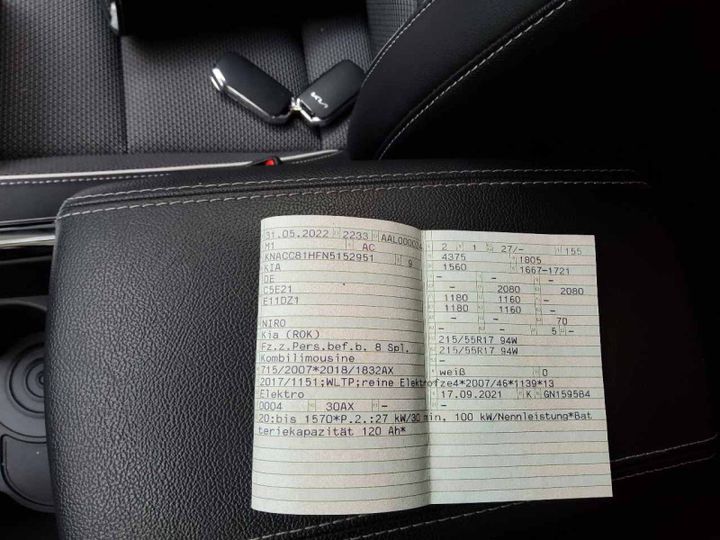 KIA
31.05.2022 2233 AAL000024
M1 AC
KNACC81HFN5152951 9
KIA
DE
C5E21
E11DZ1
NIRO
Kia (ROK)
Fz.z.Pers.bef.b. 8 Spl.
Kombilimousine
715/2007*2018/1832AX
2017/1151;WLTP;reine Elektrofz
Elektro
0004 30AX -
20:bis 1570*P.2.:27 kW/30 min, 100 kW/Nennleistung*Bat
teriekapazität 120 Ah*
2 1 27/- 155
4375 1805
1560 1667-1721
- - -
- 2080 2080
1180 1160 -
1180 1160 -
- - 70
- - 5 -
215/55R17 94W
215/55R17 94W
-
weiß 0
e4*2007/46*1139*13
17.09.2021 K GN159584
-